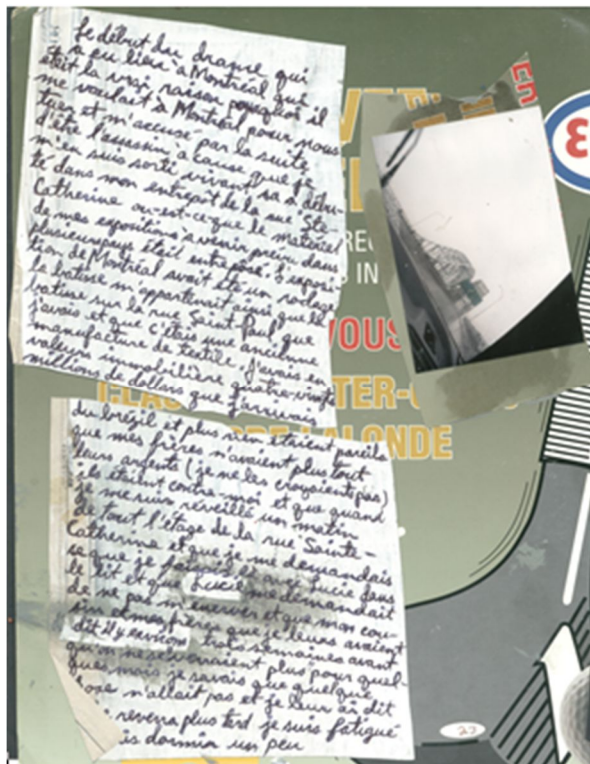 Le début du drame qui
a eu lieu à Montréal qui
était la vrai raison pourquoi il
me voulait à Montréal pour nous
tuer et m'accusé par la suite
d'être l'assassin à cause que je
m'en suis sorti vivant sa a débu-
té dans mon entrepot de la rue Ste-
Catherine ou-est-ce-que le matériel
de mes expositions à venir prévu dans
plusieurs pays était entreposé. L'exposi-
tion de Montréal avait été un
la batisse m'appartenait ainsi que la
batisse sur la rue Saint-Paul que
j'avais et que c'étais une ancienne
manufacture de textile. J'avais en
valeurs immobilière quatre-vingts
millions de dollars que j'arrivais
du brézil et plus rien étaient pareils
que mes frères n'avaient plus tout
leurs argents (je ne les croyaient pas)
ils étaient contre-moi et que quand
je me suis réveillé un matin
de tout l'étage de la rue Sainte-
Catherine et que je me demandais
se que je faisais avec Lucie dans
le lit et que Lucie me demandait
de ne pas m'énerver et que mon cou-
sin et mes frères que je leurs avaient
dit il y environ trois semaines avant
qu'on ne se verraient plus pour quel-
ques mais je savais que quelque
chose n'allait pas et je leur ai dit
revena plus tard je suis fatigué
dormir un peu
ER
3
IN
VOUS
TER-
LALONDE
27